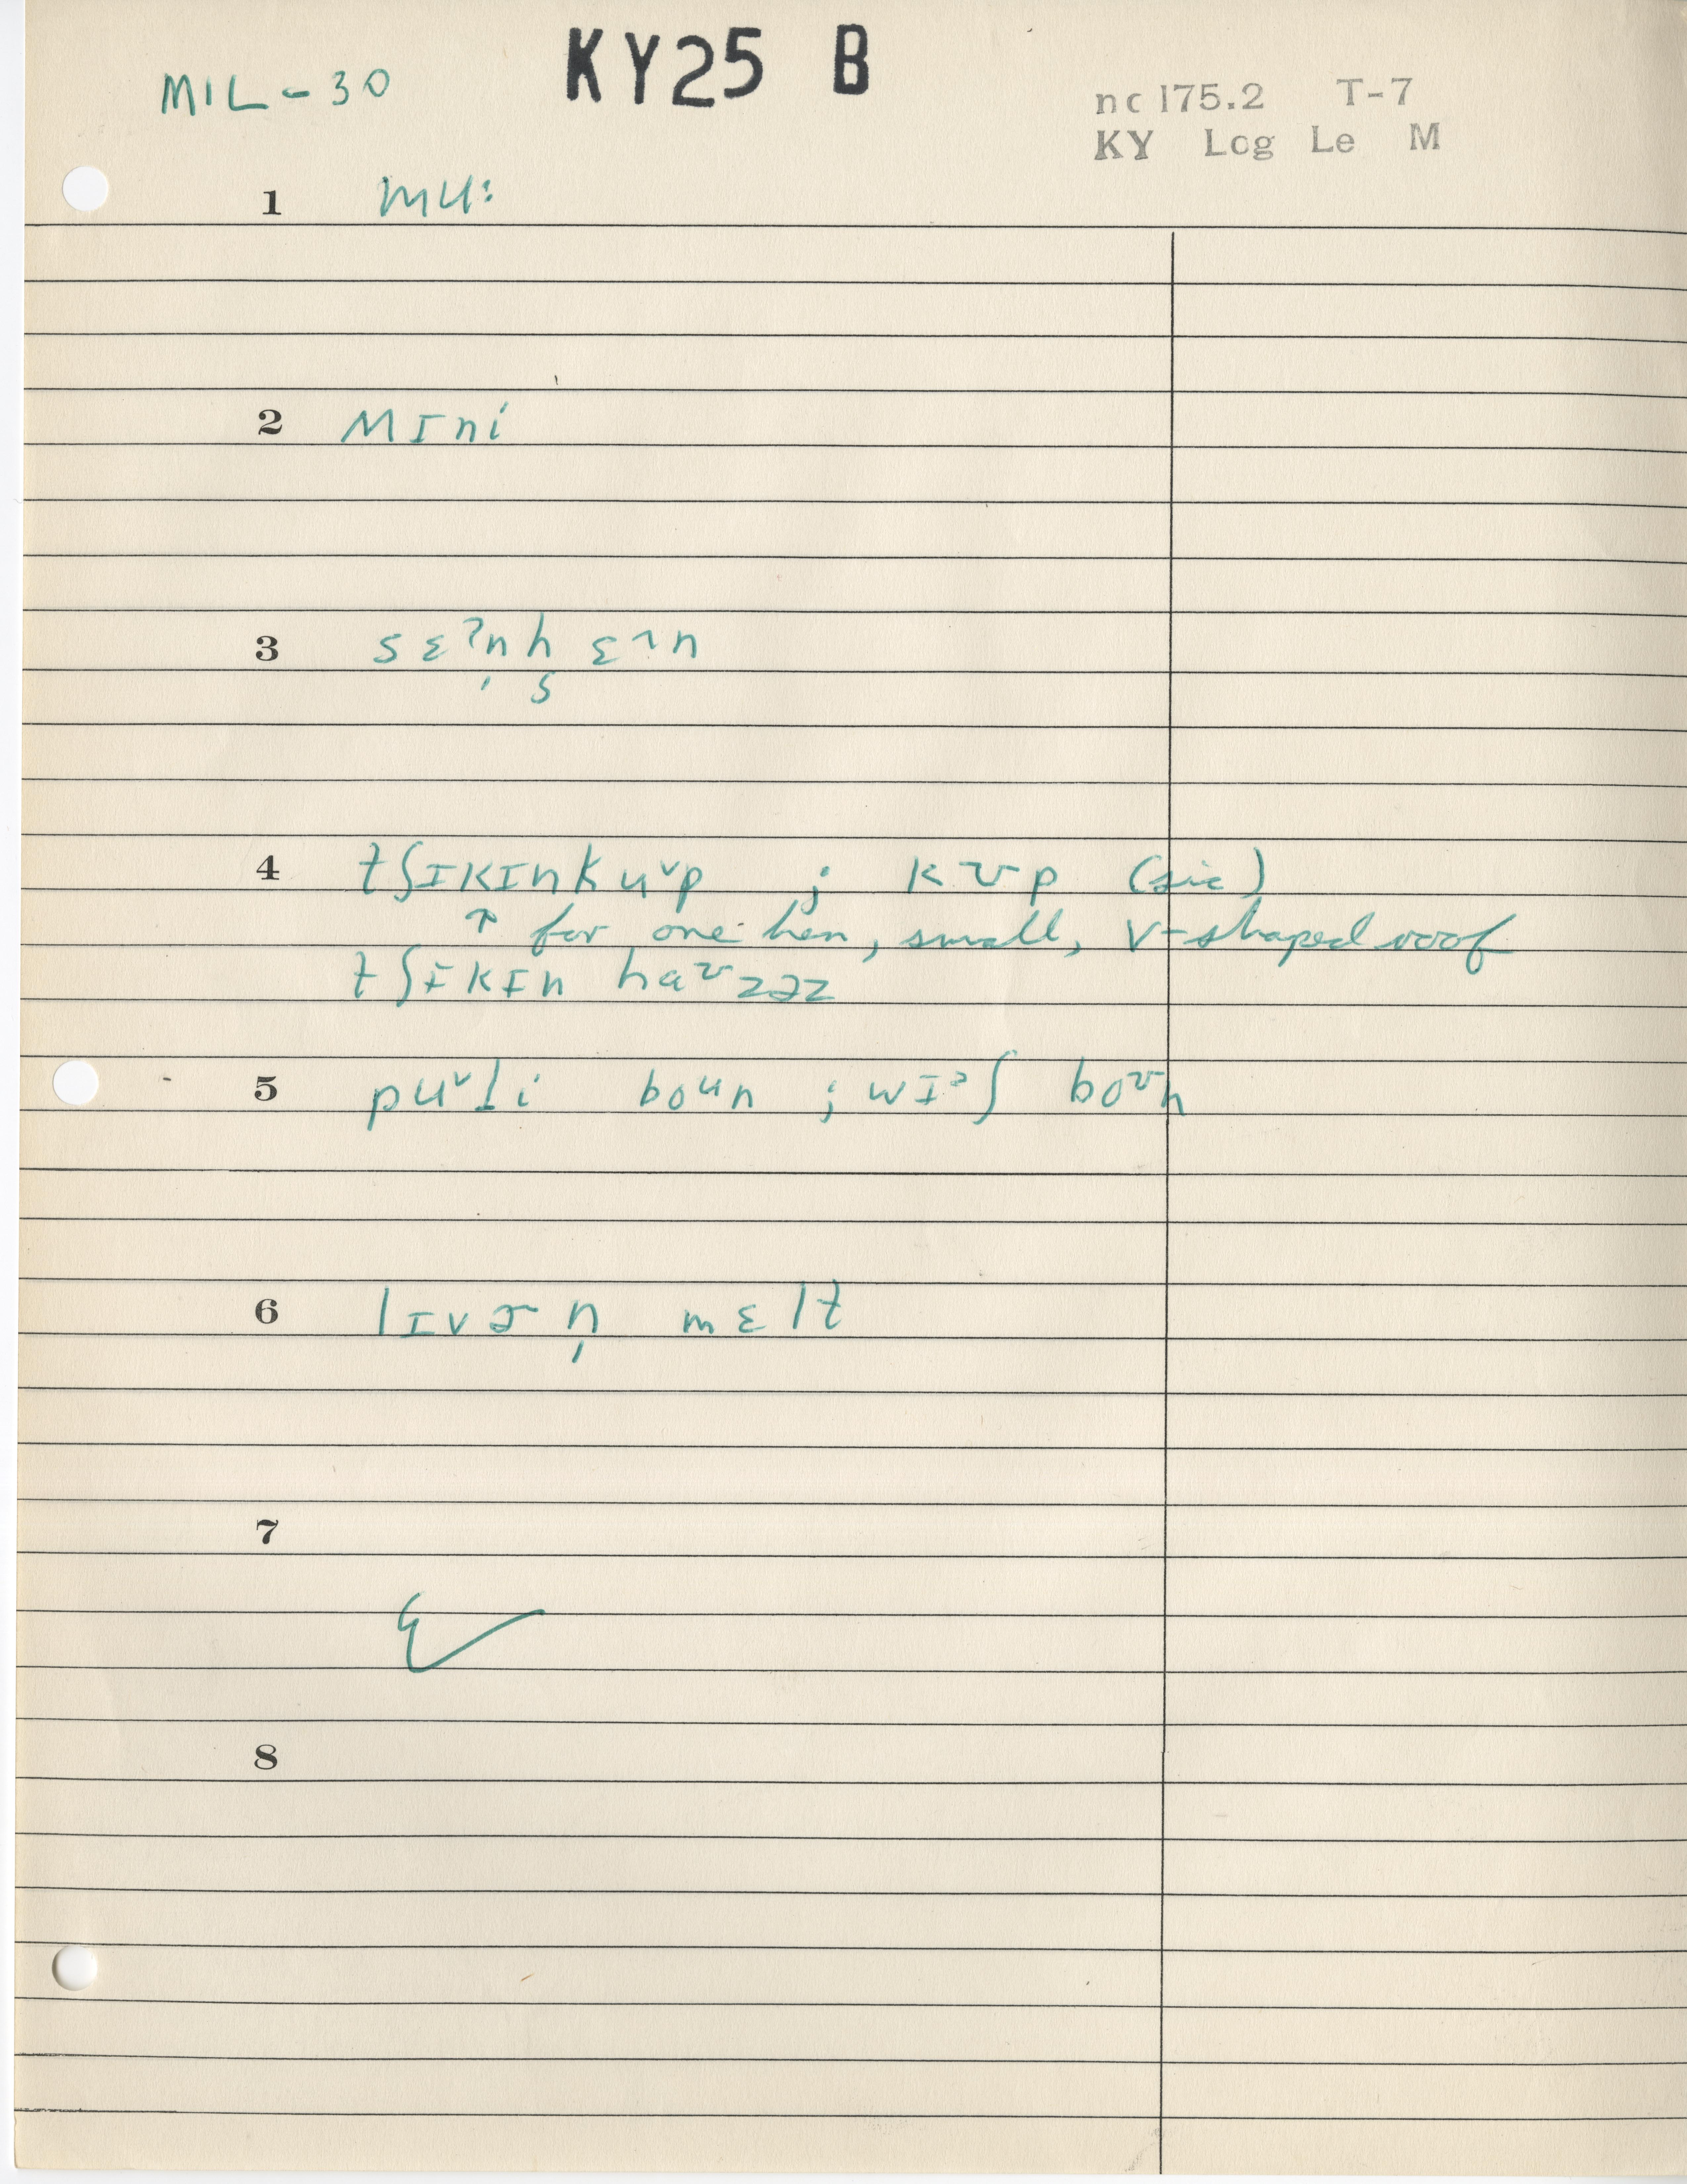 MIL-30
KY25 B
nc 175.2 T-7
KY Log Le M
1 mu:
2 mɪni
3 sɛˀn̩h ɛˀn
s
4 tʃɪkɪnkuᵛp ; kʊp (sic)
↑ for one hen, small, V-shaped roof
tʃɪkɪn haᶷzəz
5 puᵛli boᵘn ; wɪᵊʃ boᶷn
6 lɪvɚ n̩ mɛlt
7
8